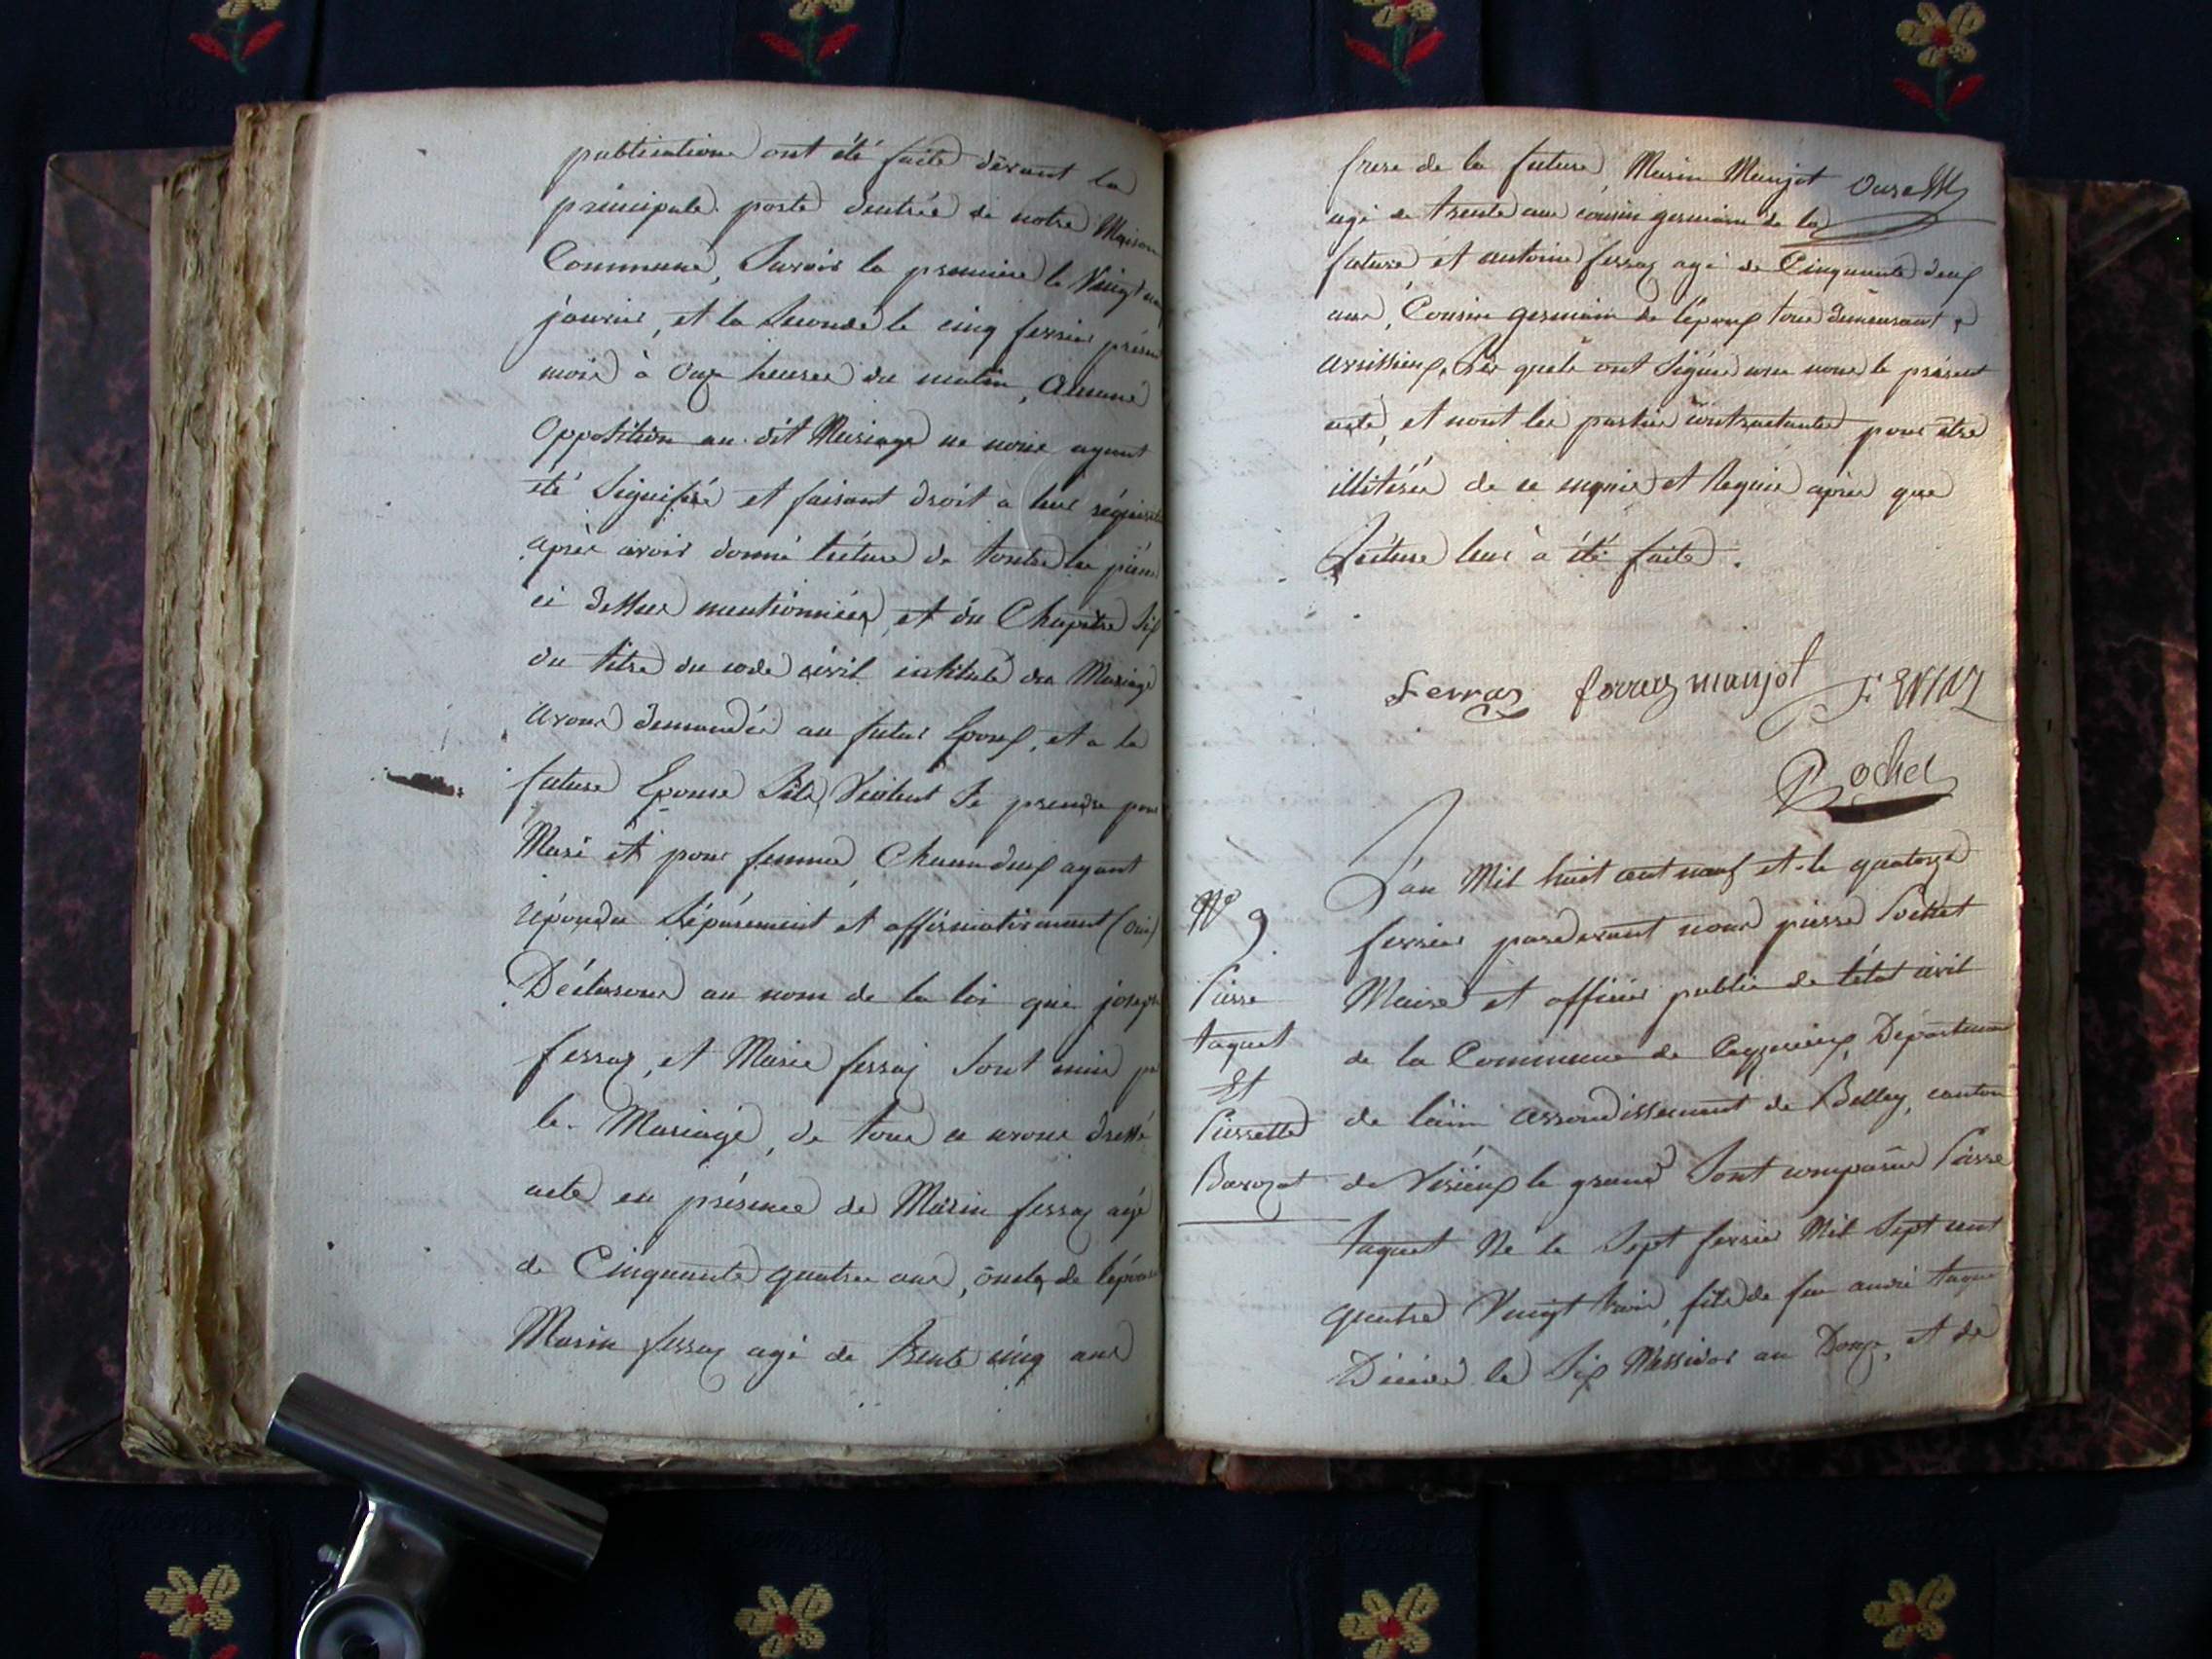 publications ont été faite devant la
principale porte dentrée de notre Maison
Commune, Savoir la premiere le Vingt
janvier, et la Seconde le cinq fevrier présent
mois à Onze heures du matin, Aucune
Opposition au dit Mariage ne nous ayant
été Signifiée et faisant droit à leur réquisition
après avoir donné lécture de toutes les pièces
ci dessus mentionnées, et du Chapitre Six
du titre du code civil intitulé du Mariage
avons demandés au futur Epoux, et a la
future Epouse Sils Veulent Se prendre pour
Mari et pour femme, Chacun deux ayant
répondu Séparement et affirmativement (oui)
Déclarons au nom de la loi que joseph
ferraz, et Marie ferraz Sont unis par
le Mariage, de tous ce avons dressé
acte en présence de Marin ferraz agé
de Cinquante quatre ans, oncle de lépouse
Marin ferraz agé de trente cinq ans
frere de la future, Marin Manjot
agé de trente ans cousin germain de la
future et antoine ferraz agé de Cinquante deux
ans, Cousin germain de lépoux tous demeurant a
avrissieux, Les quels ont Signés avec nous le présent
acte, et nont les parties contractantes pour être
illitérés de ce enquis et requis après que
Lécture leur à été faite.
Ferraz ferraz manjot Ferraz
Rochet
L'an Mil huit cent neuf et le quatorze
No 9.
fevrier pardevant nous pierre Rochet
Pierre
Maire et officier public de létat civil
taguet
de la Commune de Ceyzerieux, Département
Et
de lain arrondissement de Belley, canton
Pierrette
de Virieux le grand Sont comparus Pierre
Barozat
taguet Né le Sept fevrier Mil Sept cent
quatre Vingt trois, fils de feu andré taguet
Décédé le Six Messidor an Douze, et de